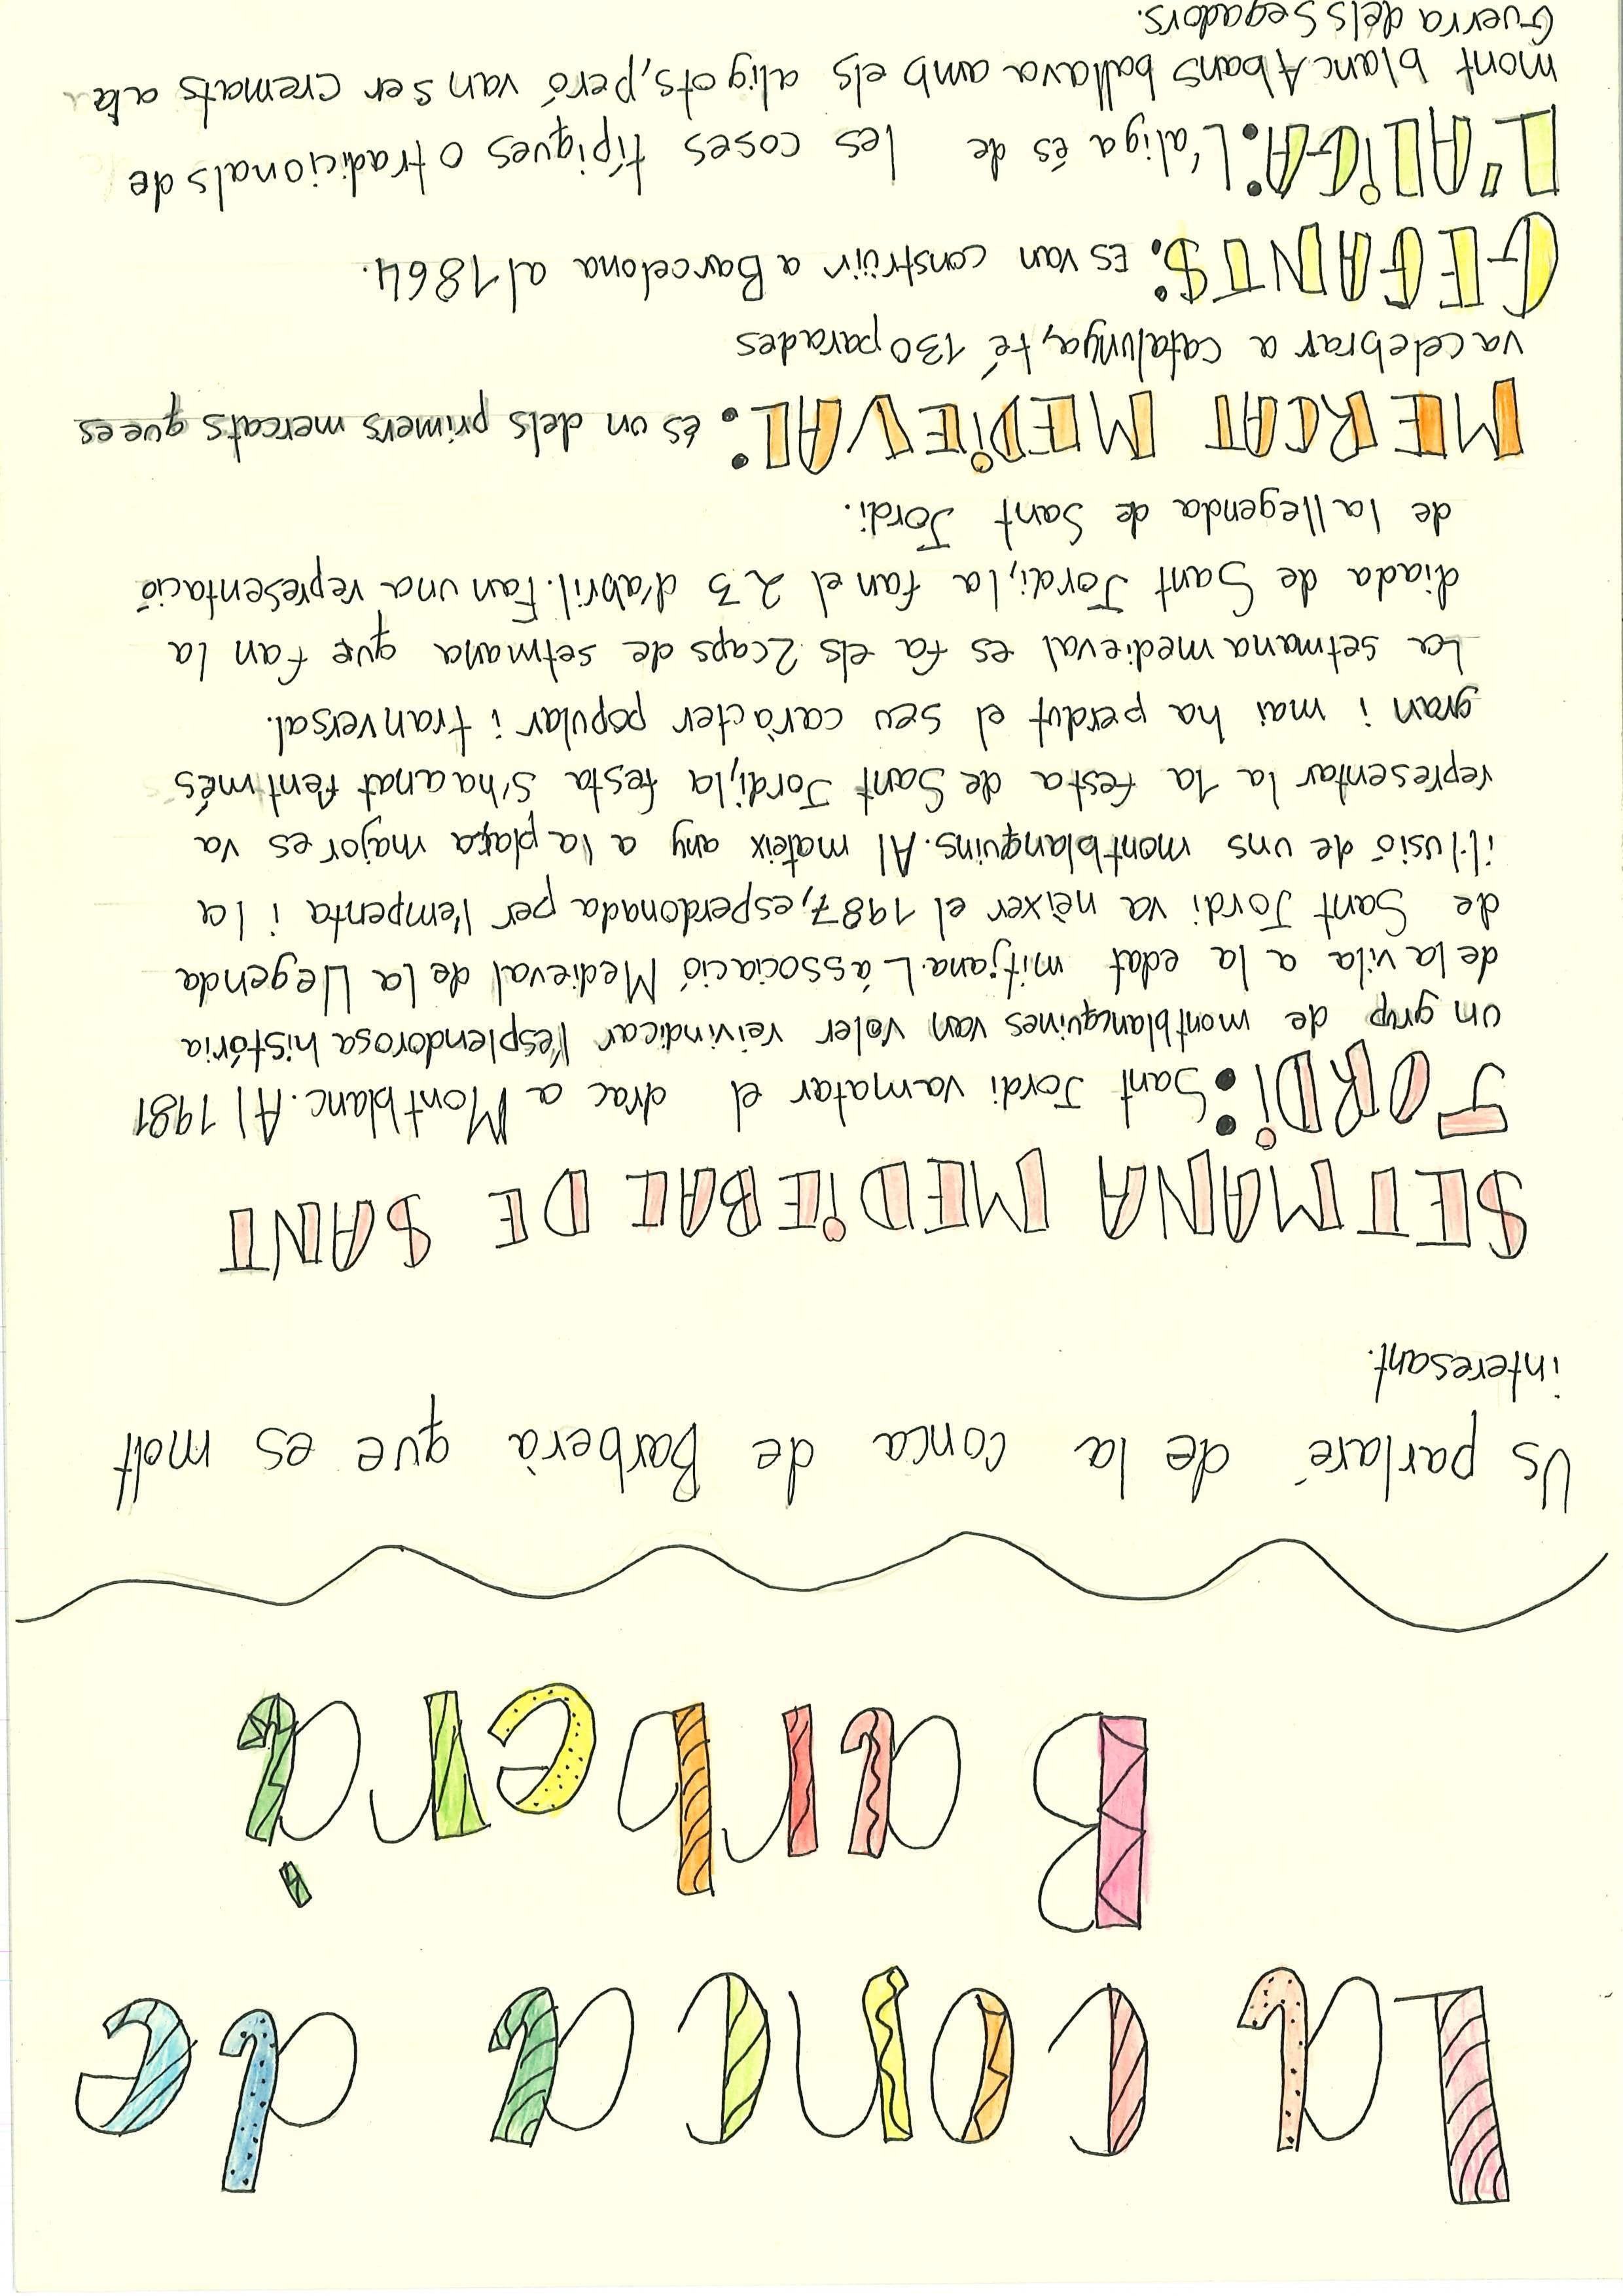 La conca de
Barberà
Us parlaré de la conca de Barberà que es molt
interesant.
SETMANA MEDIEBAL DE SANT
JORDI: Sant Jordi va matar el drac a Montblanc. Al 1981
un grup de montblanquines van voler reivindicar l'esplendorosa história
de la vila a la edat mitjana. L'associació Medieval de la Llegenda
de Sant Jordi va néixer el 1987, esperdonada per l'empenta i la
il·lusió de uns montblanquins. Al mateix any a la plaça major es va
representar la 1a festa de Sant Jordi, la festa s'ha anat fent més
gran i mai ha perdut el seu carácter popular i tranversal.
La setmana medieval es fa els 2 caps de setmana que fan la
diada de Sant Jordi, la fan el 23 d'abril. Fan una representació
de la llegenda de Sant Jordi.
MERCAT MEDIEVAL: és un dels primers mercats que es
va celebrar a catalunya, té 130 parades
GEGANTS: Es van construir a Barcelona al 1864.
L'ALIGA: L'aliga és de les coses típiques o tradicionals de
mont blanc. Abans ballava amb els aligots, peró van ser cremats a la
Guerra dels Segadors.